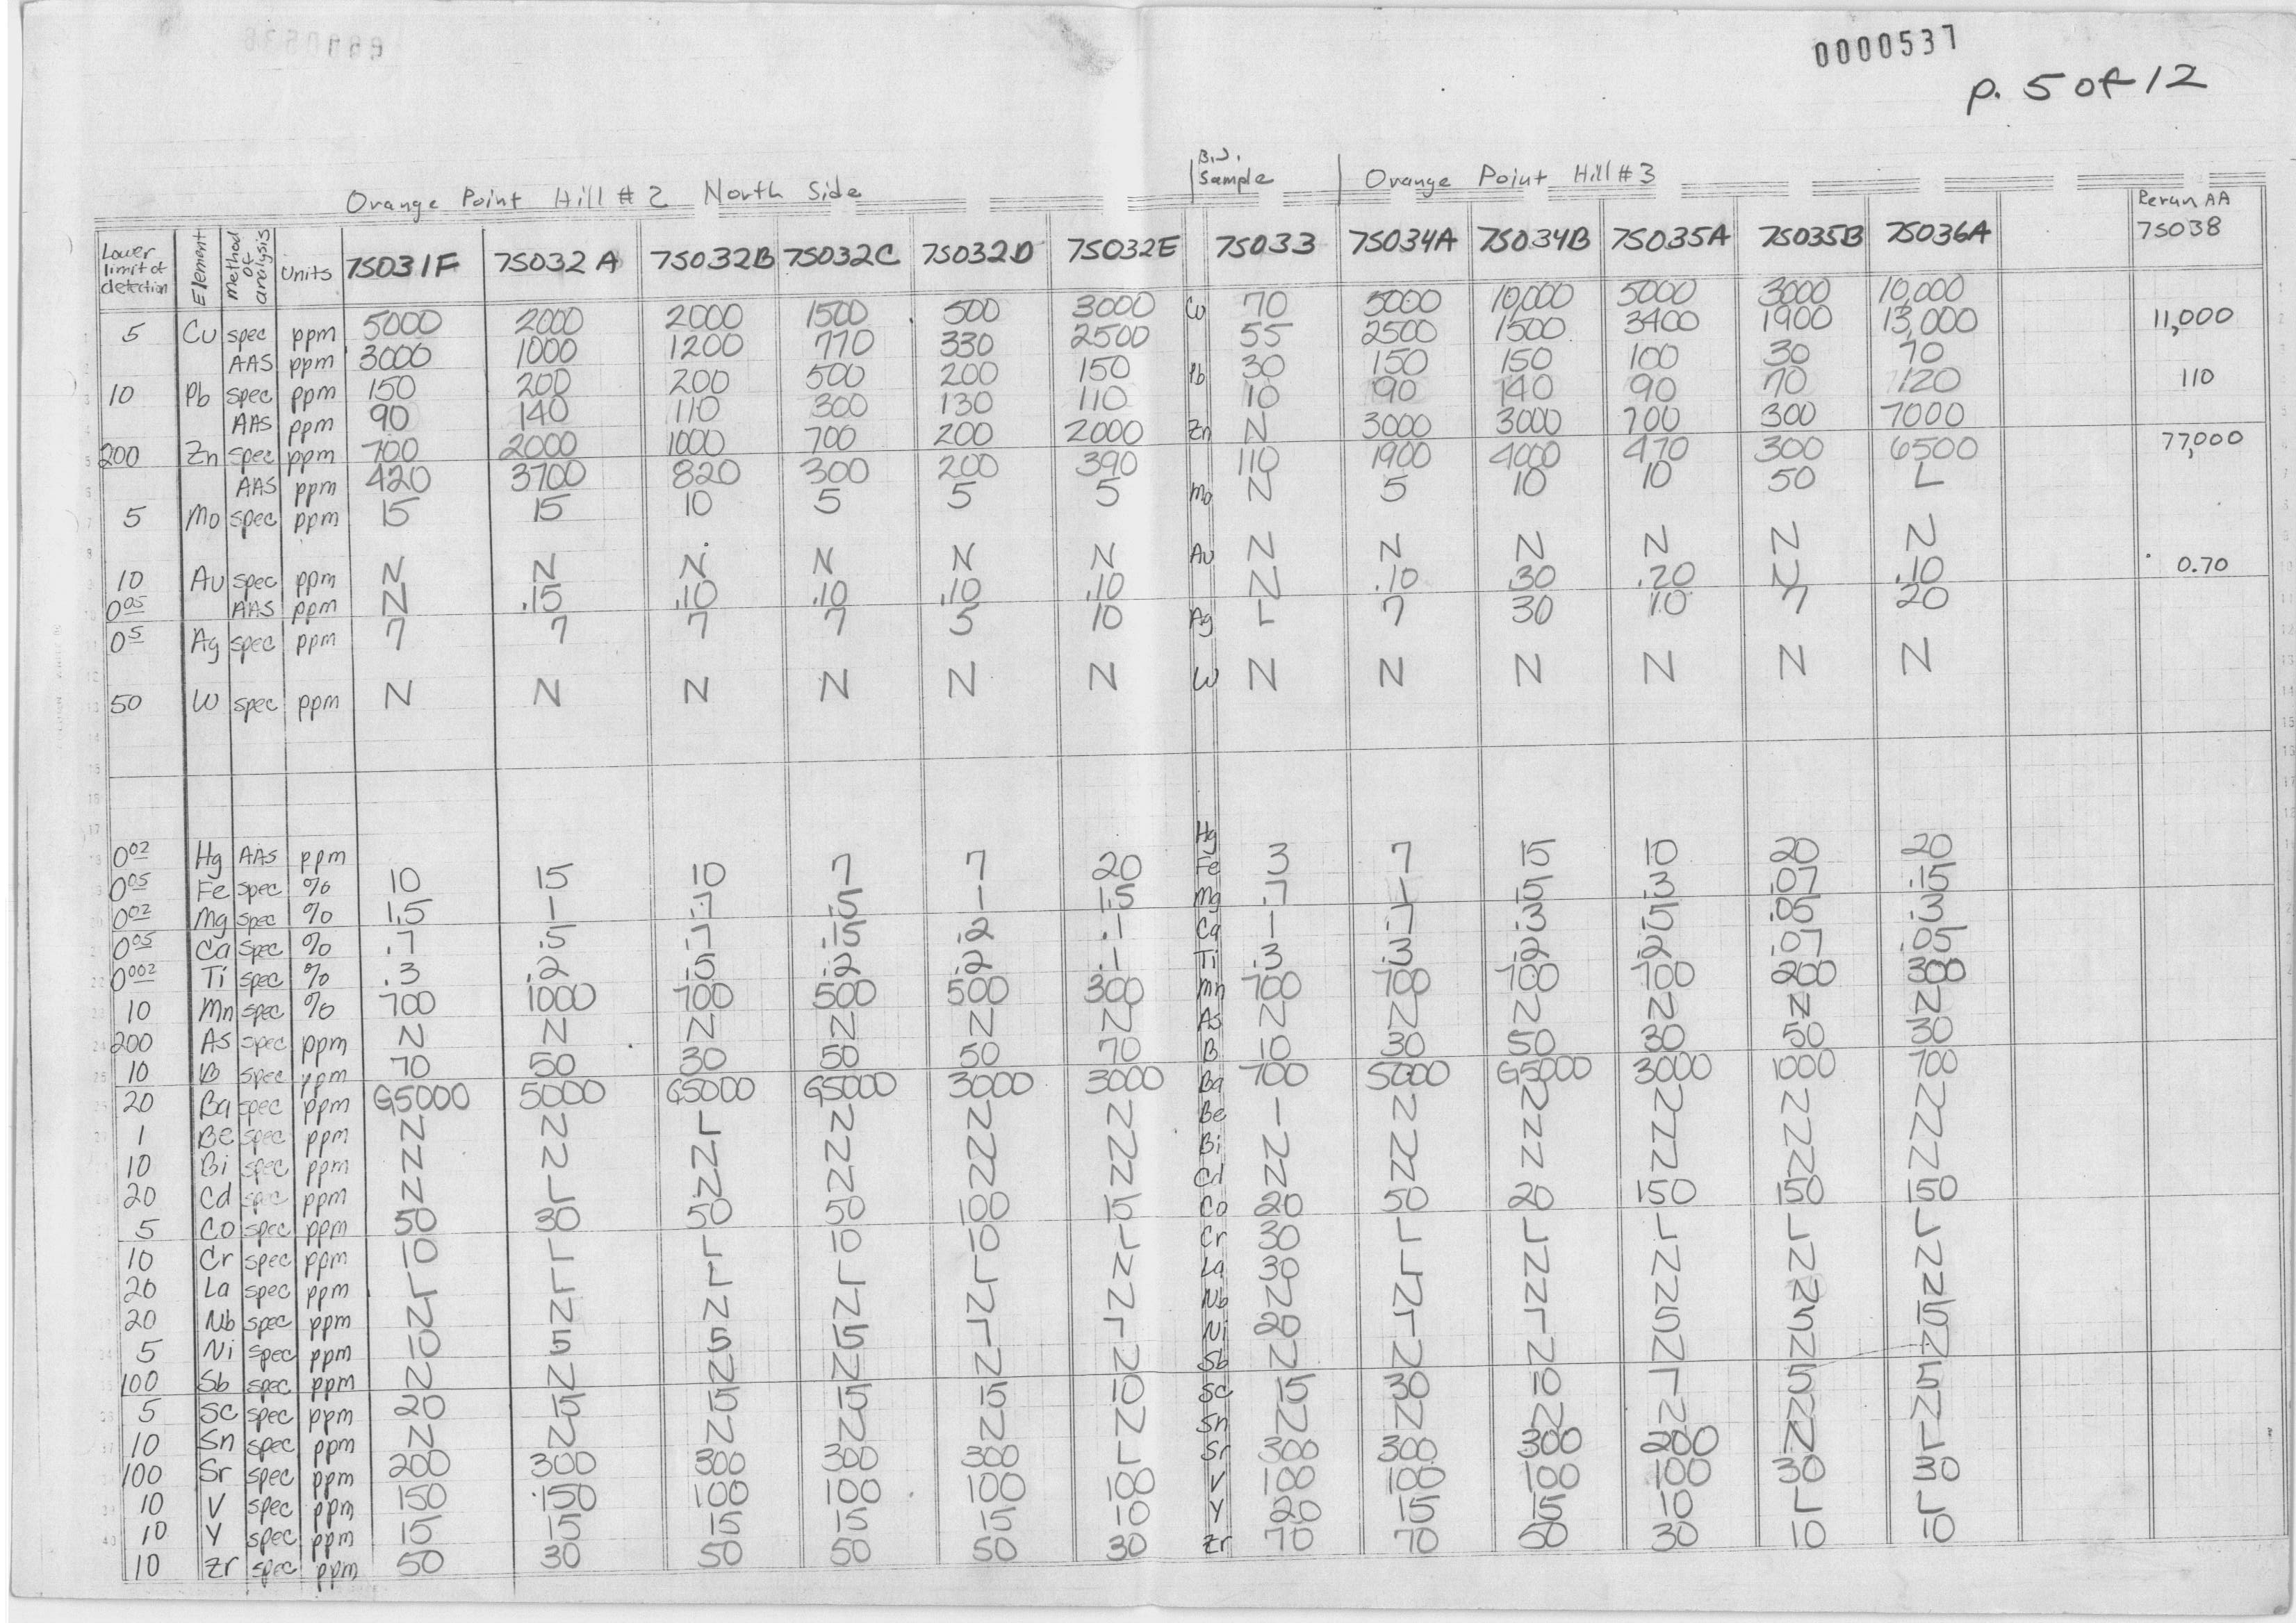 0000537
p. 5 of 12
Orange Point Hill # 2 North Side | B.J. Sample | Orange Point Hill # 3 | Rerun AA
Lower limit of detection | Element | method of analysis | Units | 75031F | 75032A | 75032B | 75032C | 75032D | 75032E | 75033 | 75034A | 75034B | 75035A | 75035B | 75036A | 75038
5 Cu spec ppm 5000 2000 2000 1500 500 3000 Cu 70 5000 10,000 5000 3000 10,000
AAS ppm 3000 1000 1200 770 330 2500 55 2500 1500 3400 1900 13,000 11,000
10 Pb spec ppm 150 200 200 500 200 150 Pb 30 150 150 100 30 70
AAS ppm 90 140 110 300 130 110 10 90 140 90 70 120 110
200 Zn spec ppm 700 2000 1000 700 200 2000 Zn N 3000 3000 700 300 7000
AAS ppm 420 3700 820 300 200 390 110 1900 4000 470 300 6500 77,000
5 Mo spec ppm 15 15 10 5 5 5 Mo N 5 10 10 50 L
10 Au spec ppm N N N N N N Au N N N N N N
0.05 AAS ppm N .15 .10 .10 .10 .10 N .10 .30 .20 N .10 0.70
0.5 Ag spec ppm 7 7 7 7 5 10 Ag L 7 30 10 7 20
50 W spec ppm N N N N N N W N N N N N N
0.02 Hg AAS ppm Hg
0.05 Fe spec % 10 15 10 7 7 20 Fe 3 7 15 10 20 20
0.02 Mg spec % 1.5 1 .5 1 1.5 Mg .7 1 .5 .3 .07 .15
0.05 Ca spec % .7 .5 .15 .2 .1 Ca 1 .3 .5 .05 .3
0.002 Ti spec % .3 .2 .5 .2 .2 .1 Ti .3 .3 .2 .2 .07 .05
10 Mn spec % 700 1000 700 500 500 300 Mn 700 700 700 700 200 300
200 As spec ppm N N N N N N As N N N N N N
10 B spec ppm 70 50 30 50 50 70 B 10 30 50 30 50 30
20 Ba spec ppm G5000 5000 G5000 G5000 3000 3000 Ba 700 5000 G5000 3000 1000 700
1 Be spec ppm N N L N N N Be 1 N N N N N
10 Bi spec ppm N N N N N N Bi N N N N N N
20 Cd spec ppm N L N N N N Cd N N N N N N
5 Co spec ppm 50 30 50 50 100 15 Co 20 50 20 150 150 150
10 Cr spec ppm 10 L L 10 10 L Cr 30 L L L L L
20 La spec ppm L L L L L N La 30 L N N N N
20 Nb spec ppm N N N N N N Nb N N N N N N
5 Ni spec ppm 10 5 5 15 7 7 Ni 20 7 7 5 5 15
100 Sb spec ppm N N N N N N Sb N N N N N N
5 Sc spec ppm 20 15 15 15 15 10 Sc 15 30 10 7 5 5
10 Sn spec ppm N N N N N N Sn N N N N N N
100 Sr spec ppm 200 300 300 300 300 L Sr 300 300 300 200 N L
10 V spec ppm 150 150 100 100 100 100 V 100 100 100 100 30 30
10 Y spec ppm 15 15 15 15 15 10 Y 20 15 15 10 L L
10 Zr spec ppm 50 30 50 50 50 30 Zr 70 70 50 30 10 10